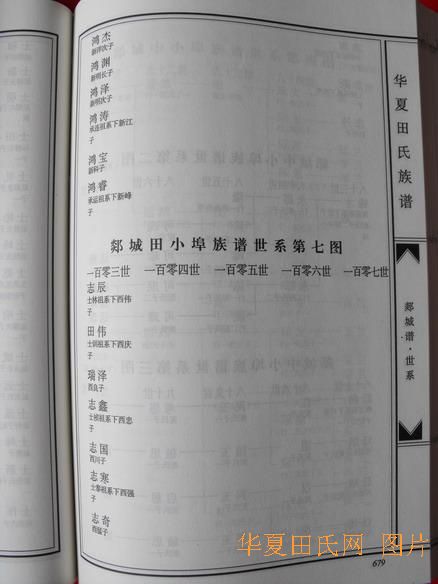 鸿杰
新洋次子
鸿渊
新明长子
鸿泽
新明次子
鸿涛
承连祖系下新江
子
鸿宝
新科子
鸿睿
承运祖系下新峰
子
郯城田小埠族谱世系第七图
一百零三世 一百零四世 一百零五世 一百零六世 一百零七世
志辰
士林祖系下西伟
子
田伟
士训祖系下西庆
子
瑞泽
西良子
志鑫
士祯祖系下西忠
子
志国
西川子
志寒
士泰祖系下西强
子
志奇
西猛子
华夏田氏族谱
郯城谱·世系
679
华夏田氏网 图片